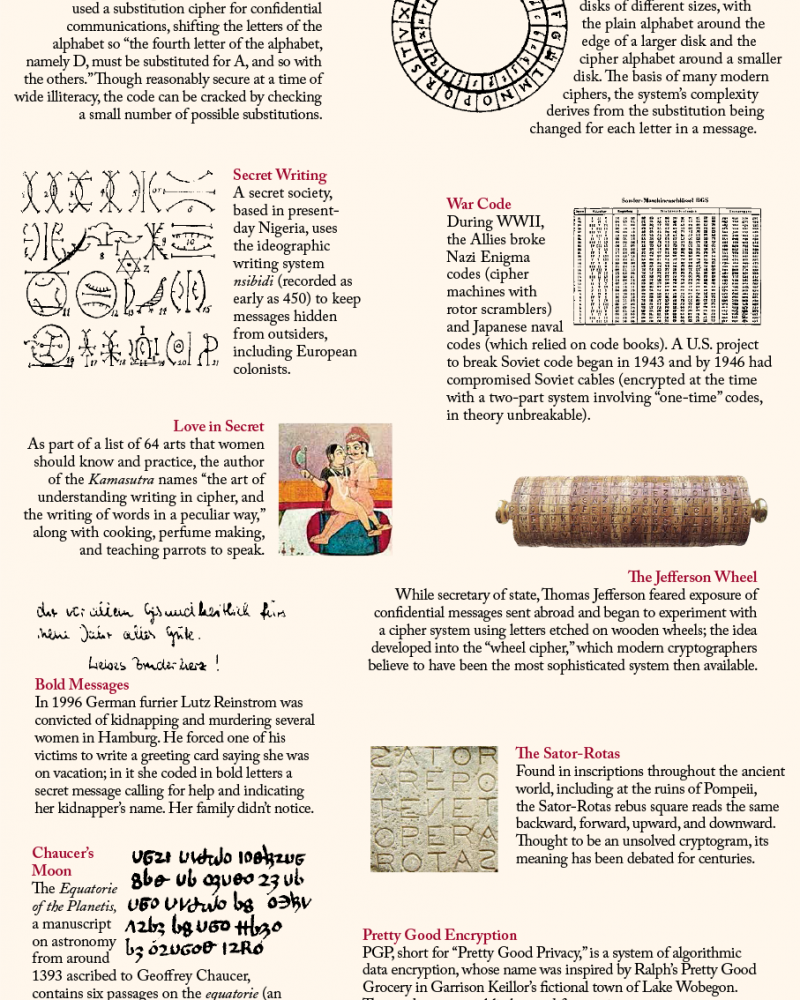 used a substitution cipher for confidential
communications, shifting the letters of the
alphabet so “the fourth letter of the alphabet,
namely D, must be substituted for A, and so with
the others.” Though reasonably secure at a time of
wide illiteracy, the code can be cracked by checking
a small number of possible substitutions.
disks of different sizes, with
the plain alphabet around the
edge of a larger disk and the
cipher alphabet around a smaller
disk. The basis of many modern
ciphers, the system’s complexity
derives from the substitution being
changed for each letter in a message.
Secret Writing
A secret society,
based in present-
day Nigeria, uses
the ideographic
writing system
nsibidi (recorded as
early as 450) to keep
messages hidden
from outsiders,
including European
colonists.
War Code
During WWII,
the Allies broke
Nazi Enigma
codes (cipher
machines with
rotor scramblers)
and Japanese naval
codes (which relied on code books). A U.S. project
to break Soviet code began in 1943 and by 1946 had
compromised Soviet cables (encrypted at the time
with a two-part system involving “one-time” codes,
in theory unbreakable).
Sonder-Maschinenschlüssel BGS
Love in Secret
As part of a list of 64 arts that women
should know and practice, the author
of the Kamasutra names “the art of
understanding writing in cipher, and
the writing of words in a peculiar way,”
along with cooking, perfume making,
and teaching parrots to speak.
The Jefferson Wheel
While secretary of state, Thomas Jefferson feared exposure of
confidential messages sent abroad and began to experiment with
a cipher system using letters etched on wooden wheels; the idea
developed into the “wheel cipher,” which modern cryptographers
believe to have been the most sophisticated system then available.
vor allem
Jahr alles Gute.
Bold Messages
In 1996 German furrier Lutz Reinstrom was
convicted of kidnapping and murdering several
women in Hamburg. He forced one of his
victims to write a greeting card saying she was
on vacation; in it she coded in bold letters a
secret message calling for help and indicating
her kidnapper’s name. Her family didn’t notice.
SATOR
AREPO
TENET
OPERA
ROTAS
The Sator-Rotas
Found in inscriptions throughout the ancient
world, including at the ruins of Pompeii,
the Sator-Rotas rebus square reads the same
backward, forward, upward, and downward.
Thought to be an unsolved cryptogram, its
meaning has been debated for centuries.
Chaucer’s
Moon
The Equatorie
of the Planetis,
a manuscript
on astronomy
from around
1393 ascribed to Geoffrey Chaucer,
contains six passages on the equatorie (an
Pretty Good Encryption
PGP, short for “Pretty Good Privacy,” is a system of algorithmic
data encryption, whose name was inspired by Ralph’s Pretty Good
Grocery in Garrison Keillor’s fictional town of Lake Wobegon.